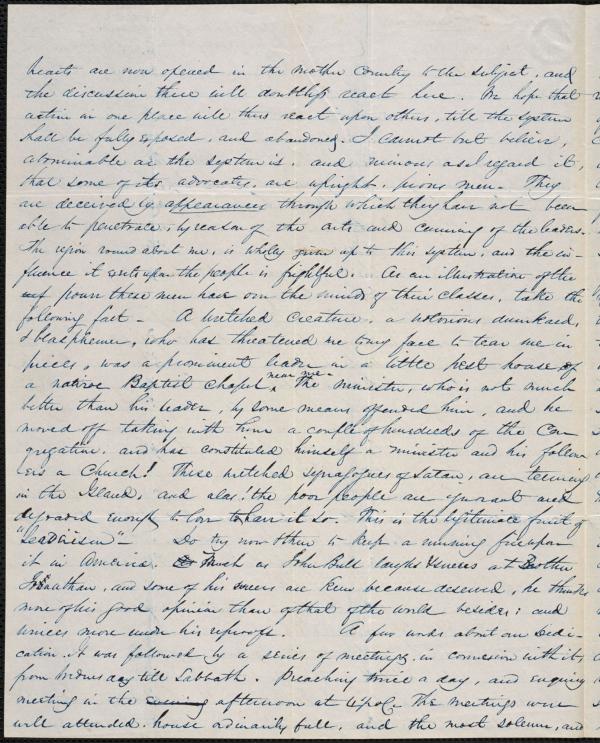 hearts are now opened in the mother country to the subject, and
the discussion there will doubtless react here. We hope that
action in one place will thus react upon others, till the system
shall be fully exposed, and abandoned. I cannot but believe,
abominable as the system is, and ruinous as I regard it,
that some of its advocates, are upright, pious men. They
are deceived by appearances through which they have not been
able to penetrate, by reason of the arts and cunning of the leaders.
The region round about me, is wholly given up to this system, and the in-
fluence it exerts upon the people is frightful. As an illustration of the
power these men have over the minds of their classes, take the
following fact - A wretched creature, a notorious drunkard,
& blasphemer, who has threatened me to my face to tear me in
pieces, was a prominent leader in a little pest house of
a native Baptist chapel near me. The minister, who is not much
better than his leader, by some means offended him, and he
moved off taking with him a couple of hundreds of the Con
gregation, and has constituted himself a minister and his follow
ers a Church! These wretched synagogues of Satan, are teeming
in the Island, and alas! the poor people are ignorant and
degraded enough to love to have it so. This is the legitimate fruit of
"Leaderism" - Do try now then to keep a running fire upon
it in America. Much as John Bull laughs & sneers at Brother
Jonathan, and some of his sneers are keen because deserved, he thinks
more of his good opinion than of that of the world besides; and
winces more under his reproofs. A few words about our Dedi-
cation. It was followed by a series of meetings in connexion with it,
from Wednesday till Sabbath. Preaching twice a day, and enquiry
meeting in the evening afternoon at 4 o'clc. The meetings were
well attended. house ordinarily full, and the most solemn, and